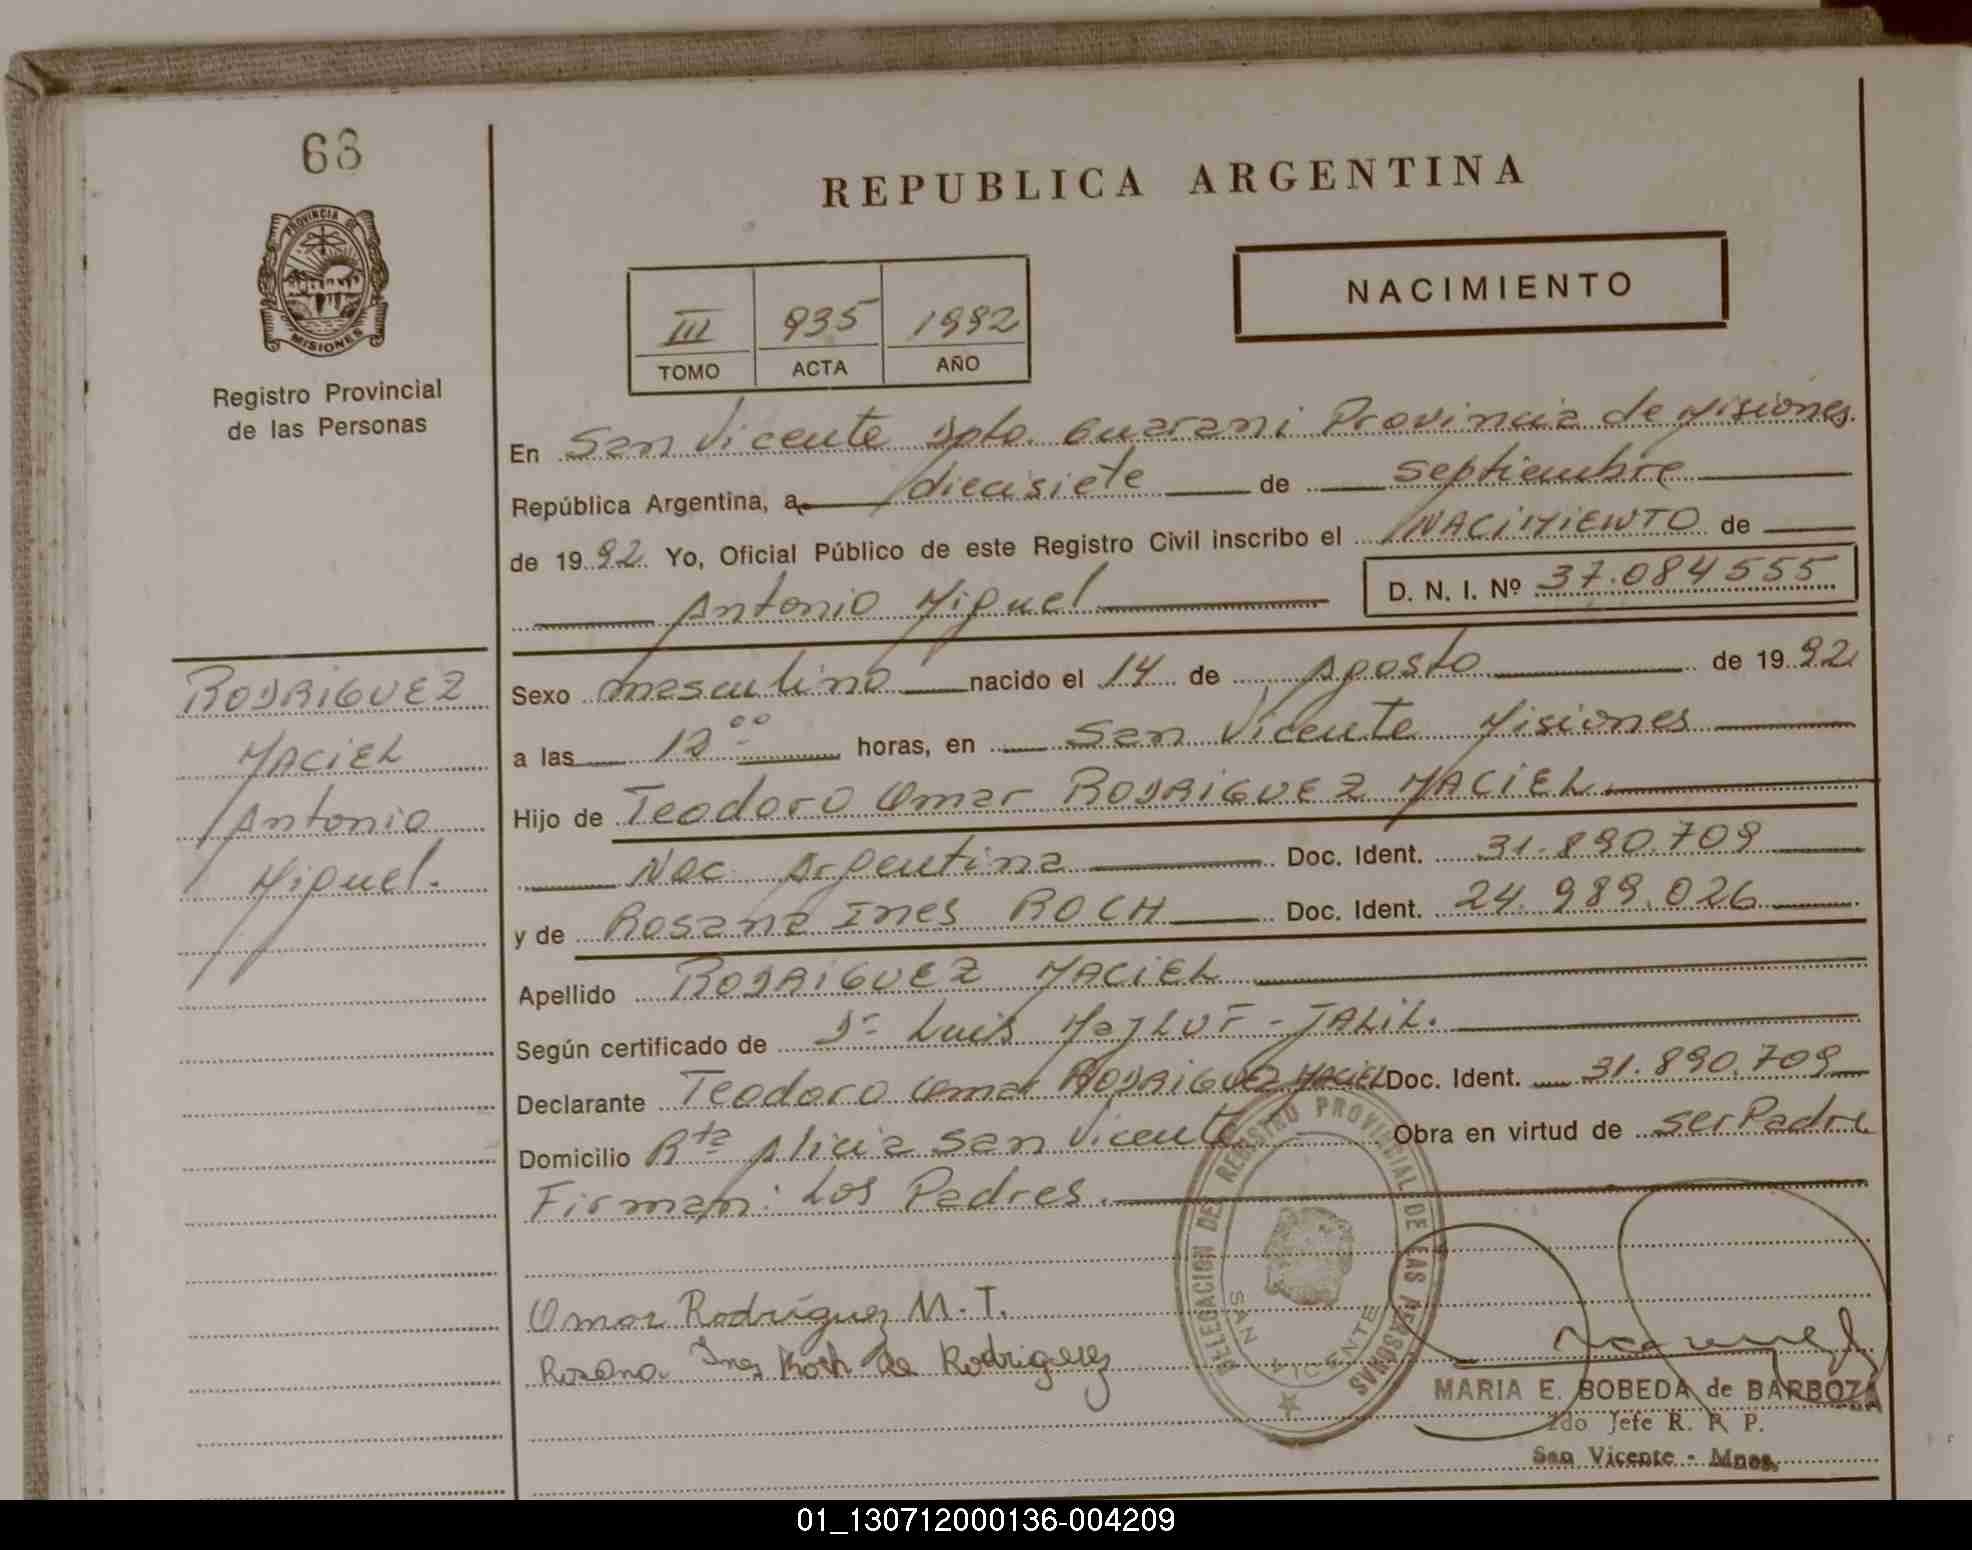 68
PROVINCIA DE
MISIONES
Registro Provincial
de las Personas
REPUBLICA ARGENTINA
III 935 1992
TOMO ACTA AÑO
NACIMIENTO
En San Vicente Dpto. Guarani Provincia de Misiones.
República Argentina, a diecisiete de septiembre
de 1992 Yo, Oficial Público de este Registro Civil inscribo el NACIMIENTO de
Antonio Miguel D. N. I. Nº 37.084555
RODRIGUEZ
MACIEL
Antonio
Miguel.
Sexo masculino nacido el 14 de Agosto de 1992
a las 12⁰⁰ horas, en San Vicente Misiones
Hijo de Teodoro Omar RODRIGUEZ MACIEL.
Nac. Argentina Doc. Ident. 31.890.709
y de Rosana Ines ROCH Doc. Ident. 24.989.026
Apellido RODRIGUEZ MACIEL
Según certificado de Dr Luis MajLUF - JALIL.
Declarante Teodoro Omar RODRIGUEZ MACIEL Doc. Ident. 31.890.709
Domicilio Rta Alicia San Vicente Obra en virtud de ser Padre
Firman: Los Padres.
Omar Rodríguez M. T.
Rosana Ines Roch de Rodriguez
DELEGACION DEL REGISTRO PROVINCIAL DE LAS PERSONAS
SAN VICENTE
MARIA E. BOBEDA de BARBOZA
2do Jefe R. P. P.
San Vicente - Mnes.
01_130712000136-004209